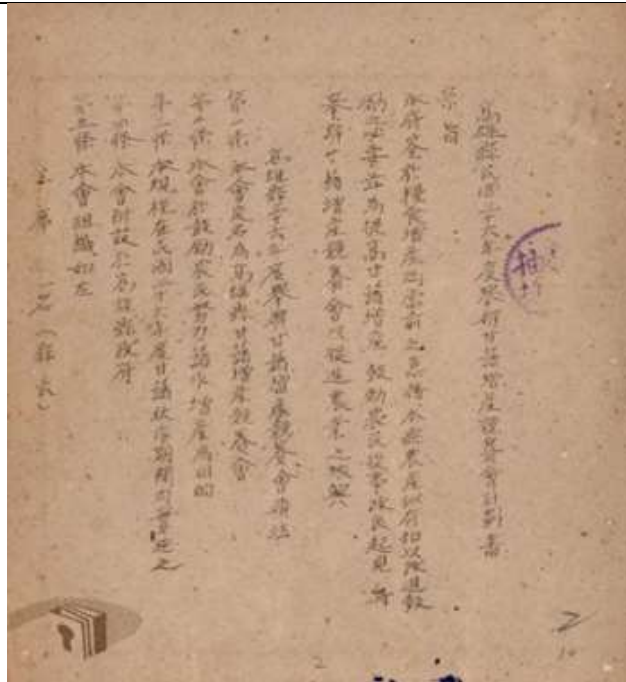 高雄縣民國三十六年度舉辦甘藷增産競賽會計劃書
宗旨
本府鑒於糧食增産為當前之急務本縣農産似有加以改進鼓
勵之必要茲為提高甘藷增産鼓勵農民從事改良起見舉
舉辦甘藷增産競賽會以促進農業之振興
高雄縣三十六年度舉辦甘藷增産競賽會辦法
第一條 本會定名為高雄縣甘藷增産競賽會
第二條 本會於鼓勵農民努力藷作增産為目的
第三條 本競賽在民國三十六年度甘藷秋作期間內舉辦之
第四條 本會附設於高雄縣政府
第五條 本會組織如左
主席 一名(縣長)
2